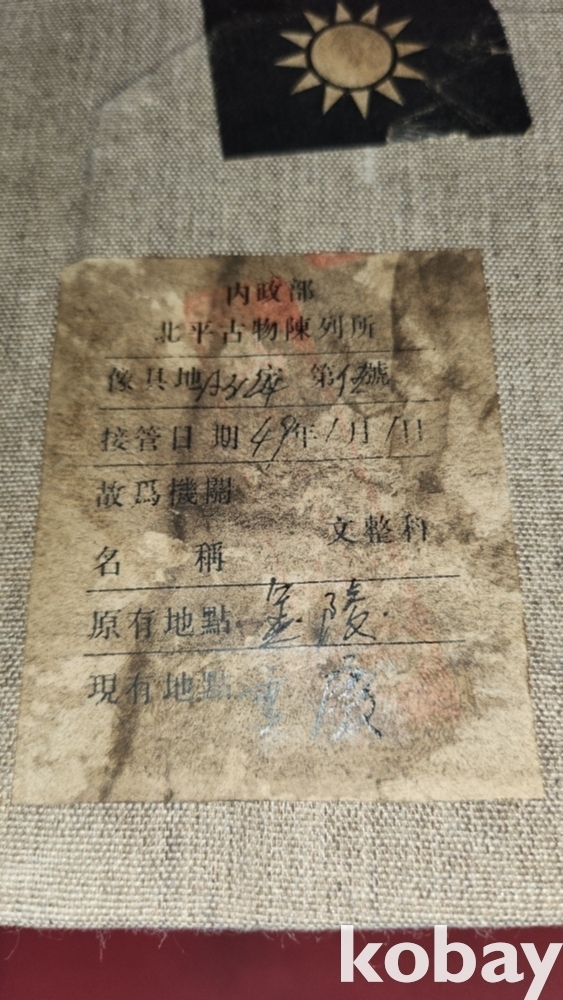 内政部
北平古物陳列所
傢具地 第 號
接管日期49年1月1日
故爲機關
文整科
名稱
原有地點 金陵
現有地點 重慶
kobay